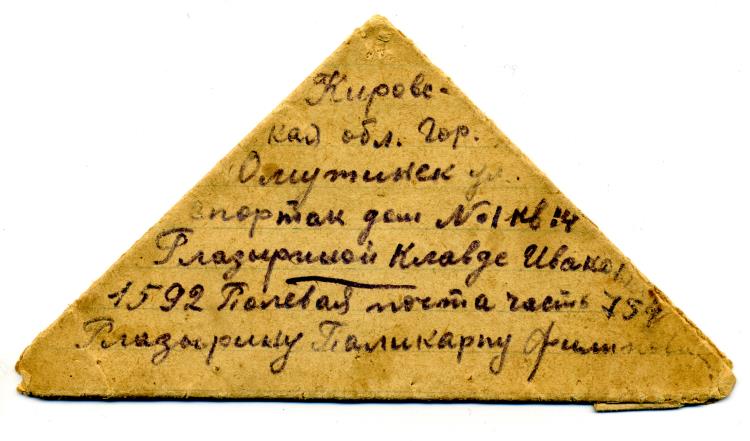 Кировс-
кая обл. Гор.
Омутинск ул.
Спортак дом №1 кв 14
Глазыриной Клавде Ивано
1592 Полевая почта часть 759
Глазырину Паликарпу Филипович